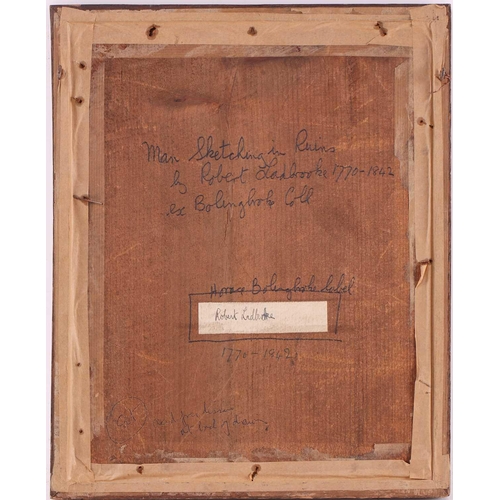 Man Sketching in Ruins
by Robert Ladbrooke 1770-1842
ex Bolingbroke Coll
Horace Bolingbroke Label
Robert Ladbrooke
1770-1842